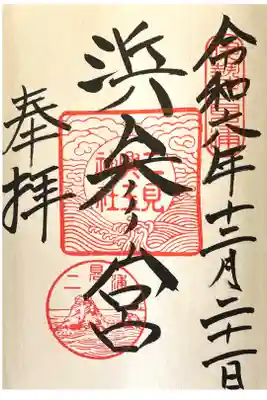 令和六年十二月二十一日
浜参宮
二見
興玉
神社
二見浦
奉拝